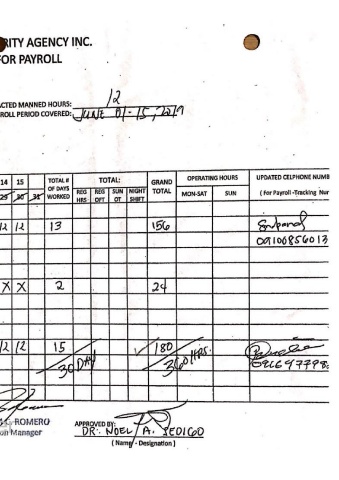 RITY AGENCY INC.
FOR PAYROLL
ACTED MANNED HOURS: 12
ROLL PERIOD COVERED: JUNE 01-15, 2019
14 15 TOTAL # OF DAYS WORKED TOTAL: GRAND TOTAL OPERATING HOURS UPDATED CELPHONE NUMBE
29 30 31 REG HRS REG OFT SUN OT NIGHT SHIFT MON-SAT SUN ( For Payroll -Tracking Nur
12 12 13 156
09100856013
X X 2 24
12 12 15 180
30 DAY 360 HRS.
ROMERO
on Manager
APPROVED BY: DR. NOEL A. SEDIGO
( Name - Designation )